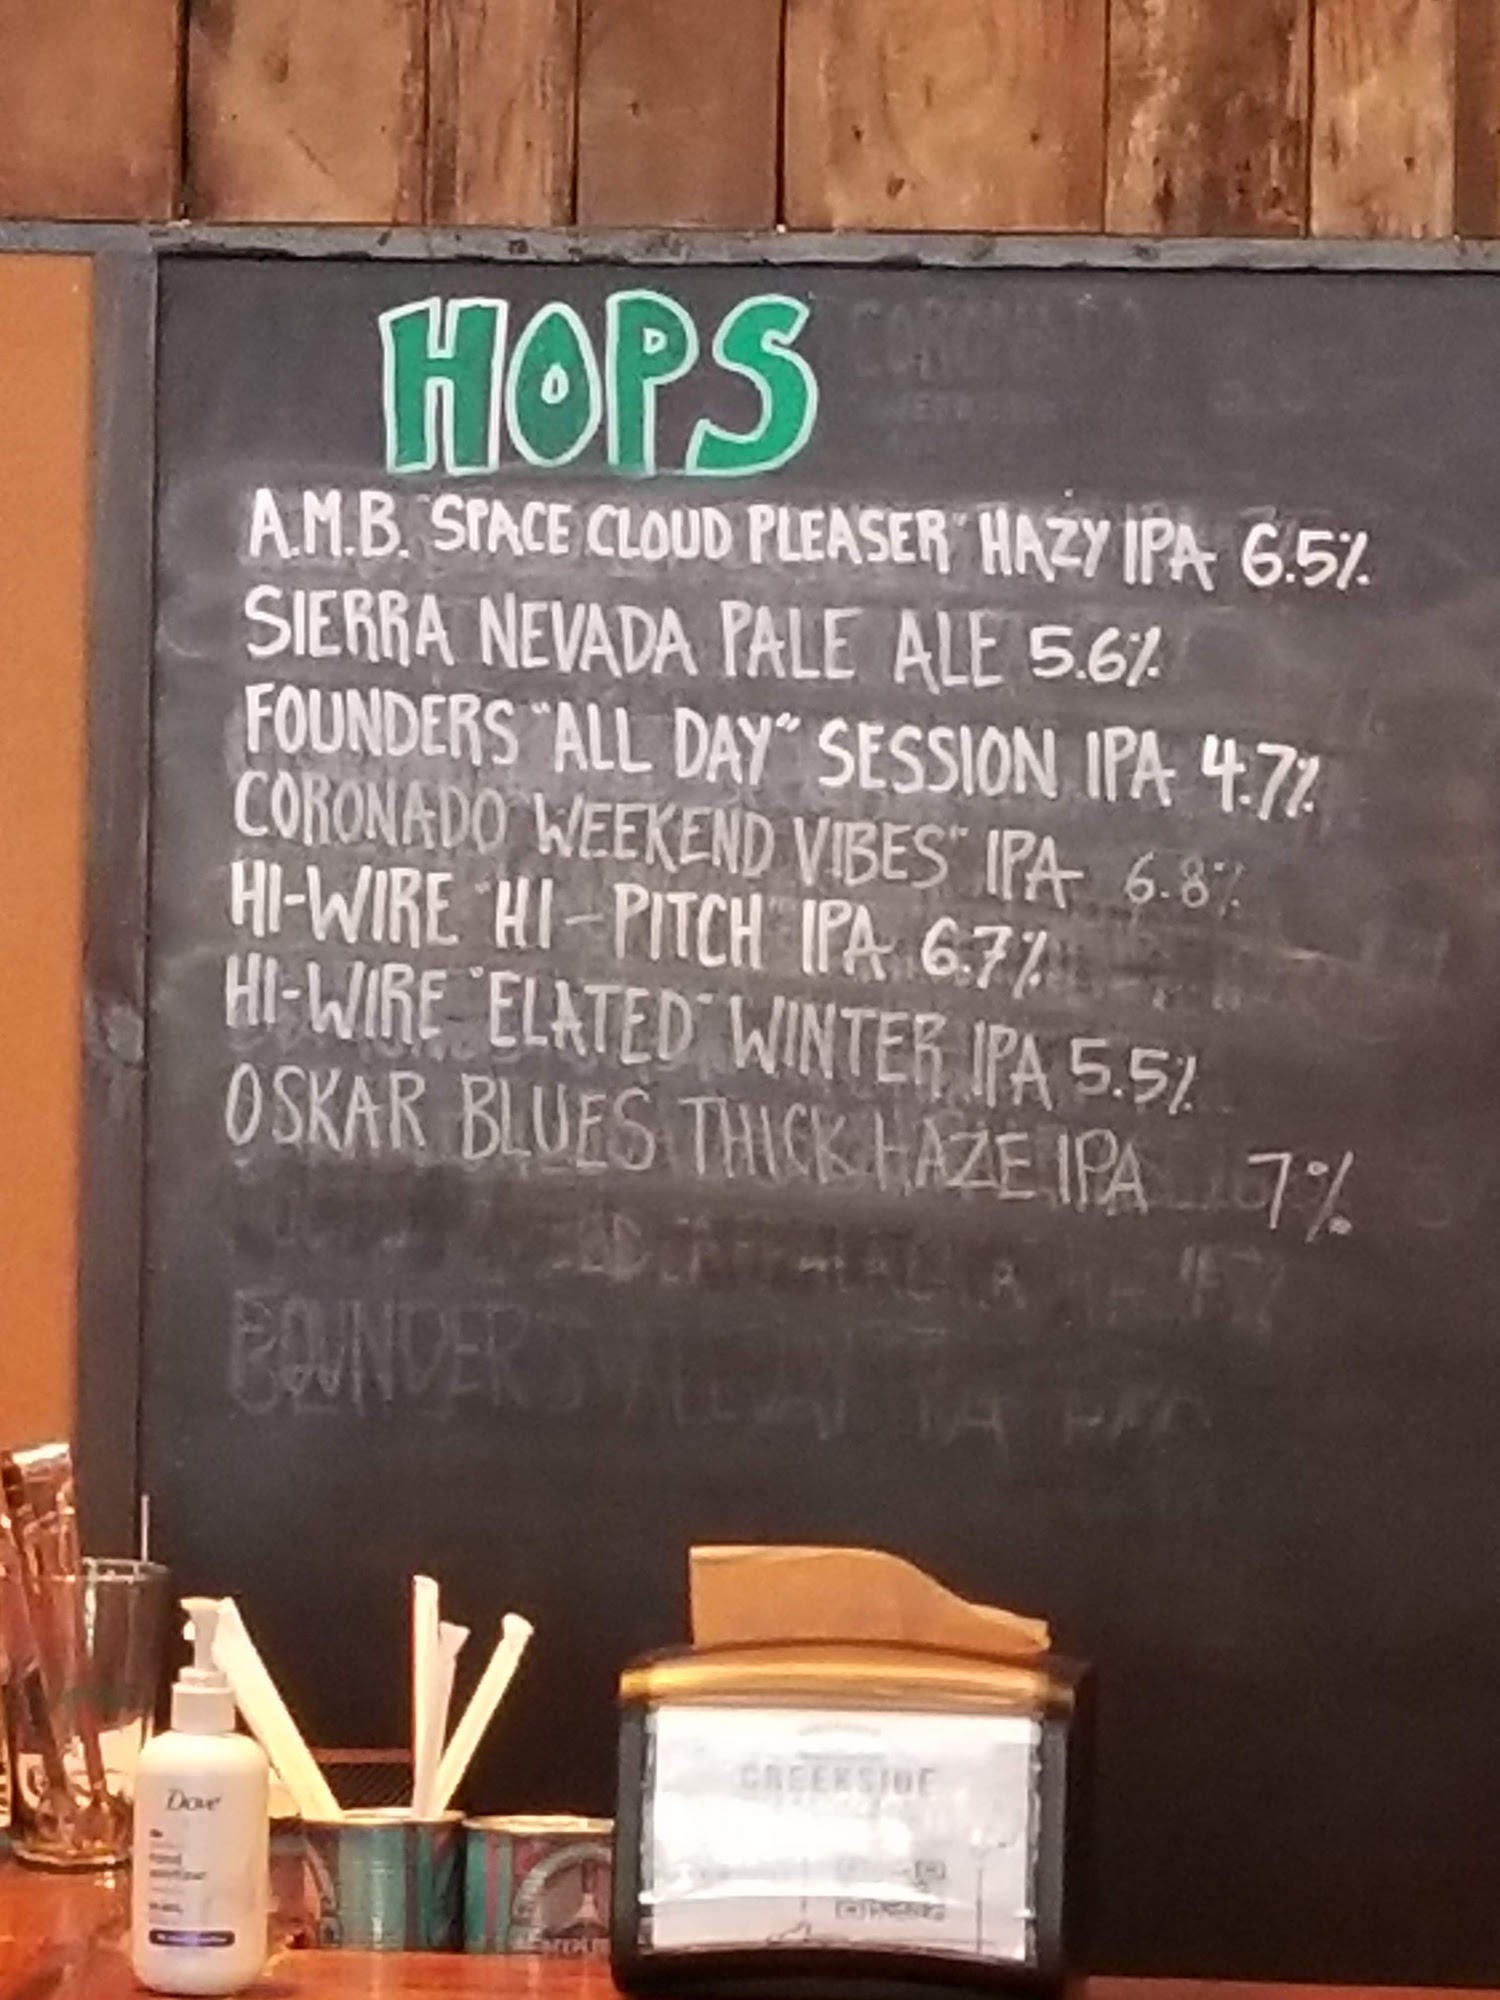 HOPS
A.M.B. "SPACE CLOUD PLEASER" HAZY IPA 6.5%
SIERRA NEVADA PALE ALE 5.6%
FOUNDERS "ALL DAY" SESSION IPA 4.7%
CORONADO "WEEKEND VIBES" IPA 6.8%
HI-WIRE "HI-PITCH" IPA 6.7%
HI-WIRE "ELATED" WINTER IPA 5.5%
OSKAR BLUES THICK HAZE IPA 7%
FOUNDERS
Dove
CREEKSIDE